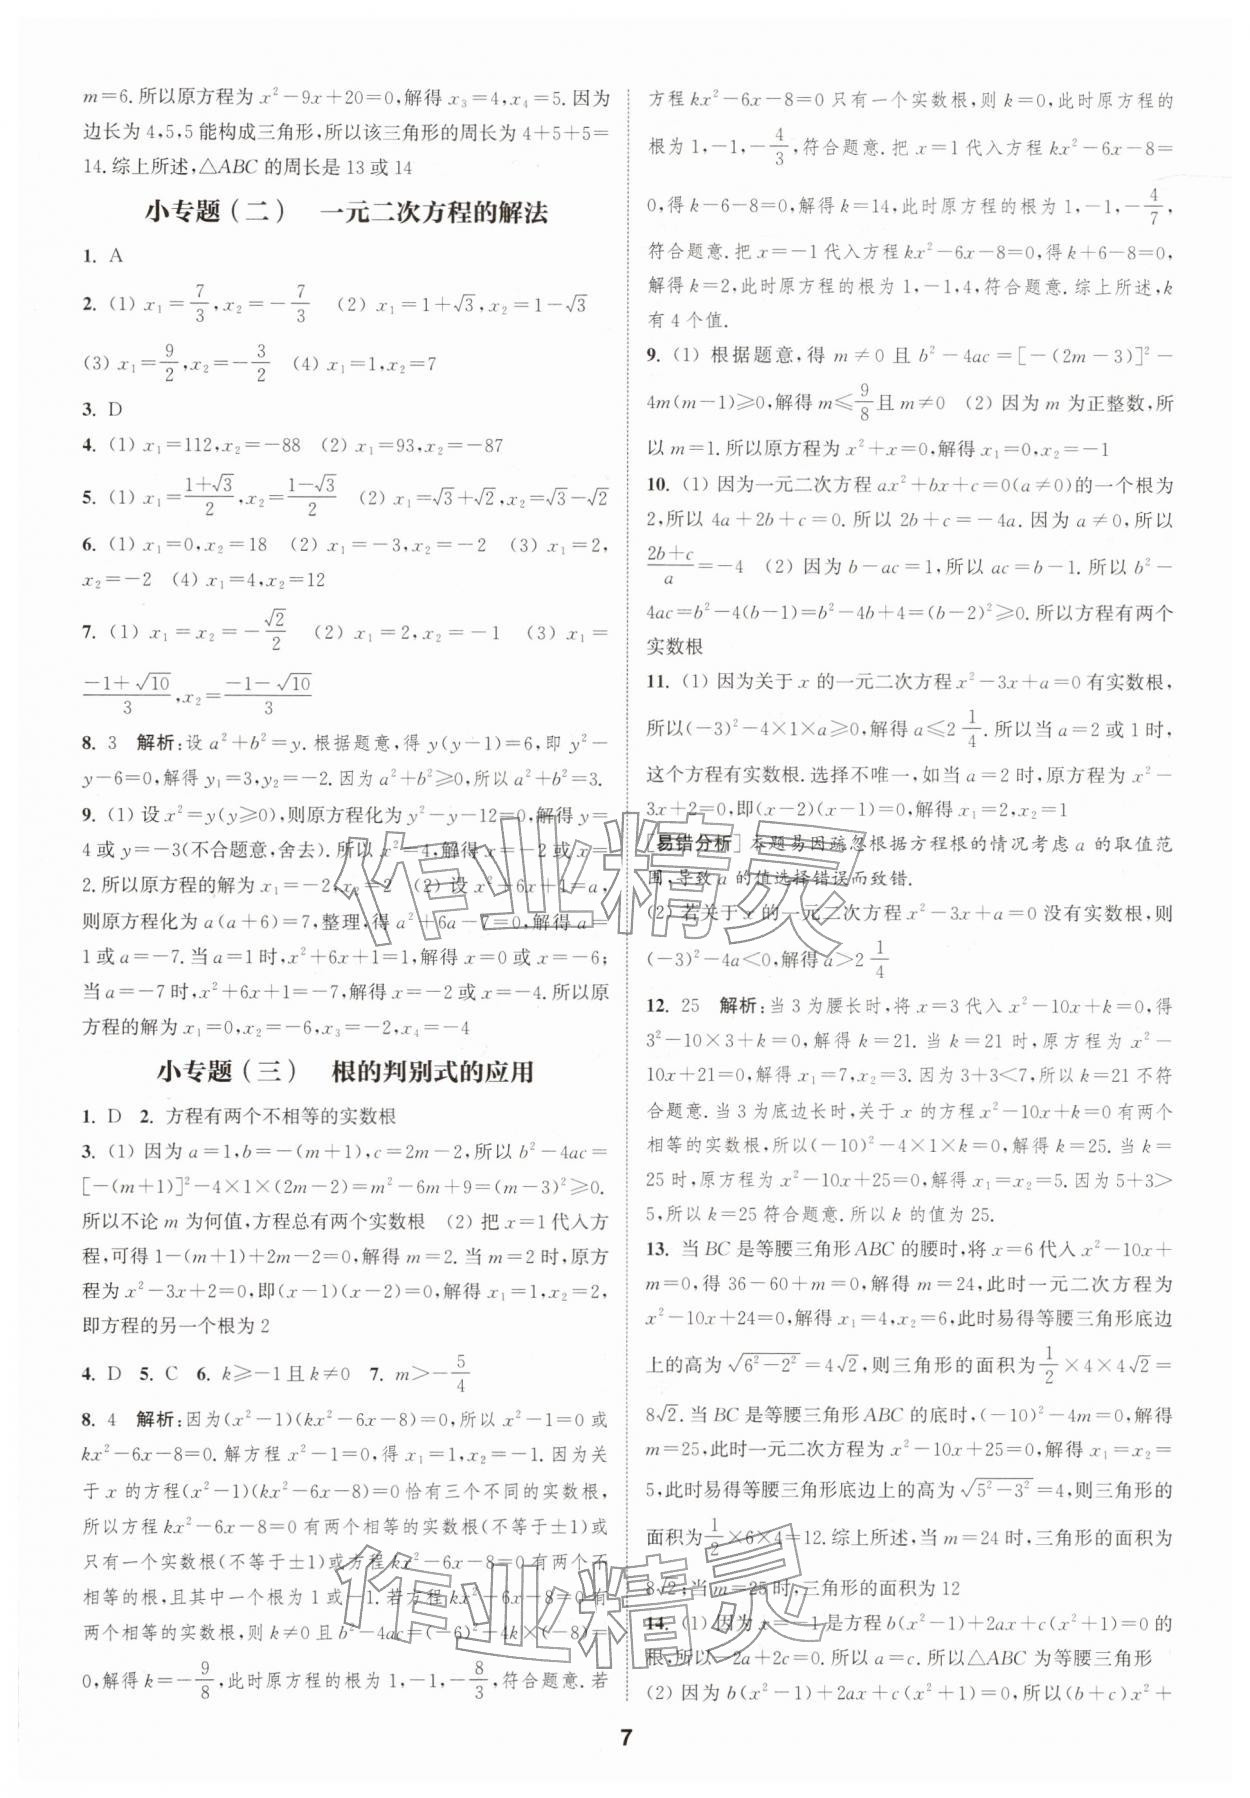 m=6.所以原方程为 x²-9x+20=0,解得 x₃=4,x₄=5.因为
边长为 4,5,5 能构成三角形,所以该三角形的周长为 4+5+5=
14.综上所述,△ABC 的周长是 13 或 14
小专题(二) 一元二次方程的解法
1. A
2. (1) x₁=7/3,x₂=-7/3 (2) x₁=1+√3,x₂=1-√3
(3) x₁=9/2,x₂=-3/2 (4) x₁=1,x₂=7
3. D
4. (1) x₁=112,x₂=-88 (2) x₁=93,x₂=-87
5. (1) x₁=(1+√3)/2,x₂=(1-√3)/2 (2) x₁=√3+√2,x₂=√3-√2
6. (1) x₁=0,x₂=18 (2) x₁=-3,x₂=-2 (3) x₁=2,
x₂=-2 (4) x₁=4,x₂=12
7. (1) x₁=x₂=-√2/2 (2) x₁=2,x₂=-1 (3) x₁=
(-1+√10)/3,x₂=(-1-√10)/3
8. 3 解析:设 a²+b²=y.根据题意,得 y(y-1)=6,即 y²-
y-6=0,解得 y₁=3,y₂=-2.因为 a²+b²≥0,所以 a²+b²=3.
9. (1) 设 x²=y(y≥0),则原方程化为 y²-y-12=0,解得 y=
4 或 y=-3(不合题意,舍去).所以 x²=4,解得 x=-2 或 x=
2.所以原方程的解为 x₁=-2,x₂=2 (2) 设 x²+6x+1=a,
则原方程化为 a(a+6)=7,整理,得 a²+6a-7=0,解得 a=
1 或 a=-7.当 a=1 时,x²+6x+1=1,解得 x=0 或 x=-6;
当 a=-7 时,x²+6x+1=-7,解得 x=-2 或 x=-4.所以原
方程的解为 x₁=0,x₂=-6,x₃=-2,x₄=-4
小专题(三) 根的判别式的应用
1. D 2. 方程有两个不相等的实数根
3. (1) 因为 a=1,b=-(m+1),c=2m-2,所以 b²-4ac=
[-(m+1)]²-4×1×(2m-2)=m²-6m+9=(m-3)²≥0.
所以不论 m 为何值,方程总有两个实数根 (2) 把 x=1 代入方
程,可得 1-(m+1)+2m-2=0,解得 m=2.当 m=2 时,原方
程为 x²-3x+2=0,即(x-1)(x-2)=0,解得 x₁=1,x₂=2,
即方程的另一个根为 2
4. D 5. C 6. k≥-1 且 k≠0 7. m>-5/4
8. 4 解析:因为(x²-1)(kx²-6x-8)=0,所以 x²-1=0 或
kx²-6x-8=0.解方程 x²-1=0,得 x₁=1,x₂=-1.因为关
于 x 的方程(x²-1)(kx²-6x-8)=0 恰有三个不同的实数根,
所以方程 kx²-6x-8=0 有两个相等的实数根(不等于±1)或
只有一个实数根(不等于±1)或方程 kx²-6x-8=0 有两个不
相等的根,且其中一个根为 1 或-1.若方程 kx²-6x-8=0 有
两个相等的实数根,则 k≠0 且 b²-4ac=(-6)²-4k×(-8)=
0,解得 k=-9/8,此时原方程的根为 1,-1,-8/3,符合题意.若
方程 kx²-6x-8=0 只有一个实数根,则 k=0,此时原方程的
根为 1,-1,-4/3,符合题意.把 x=1 代入方程 kx²-6x-8=
0,得 k-6-8=0,解得 k=14,此时原方程的根为 1,-1,-4/7,
符合题意.把 x=-1 代入方程 kx²-6x-8=0,得 k+6-8=0,
解得 k=2,此时原方程的根为 1,-1,4,符合题意.综上所述,k
有 4 个值.
9. (1) 根据题意,得 m≠0 且 b²-4ac=[-(2m-3)]²-
4m(m-1)≥0,解得 m≤9/8且 m≠0 (2) 因为 m 为正整数,所
以 m=1.所以原方程为 x²+x=0,解得 x₁=0,x₂=-1
10. (1) 因为一元二次方程 ax²+bx+c=0(a≠0)的一个根为
2,所以 4a+2b+c=0.所以 2b+c=-4a.因为 a≠0,所以
(2b+c)/a=-4 (2) 因为 b-ac=1,所以 ac=b-1.所以 b²-
4ac=b²-4(b-1)=b²-4b+4=(b-2)²≥0.所以方程有两个
实数根
11. (1) 因为关于 x 的一元二次方程 x²-3x+a=0 有实数根,
所以(-3)²-4×1×a≥0,解得 a≤2 1/4.所以当 a=2 或 1 时,
这个方程有实数根.选择不唯一,如当 a=2 时,原方程为 x²-
3x+2=0,即(x-2)(x-1)=0,解得 x₁=2,x₂=1
[易错分析]本题易因疏忽根据方程根的情况考虑 a 的取值范
围,导致 a 的值选择错误而致错.
(2) 若关于 x 的一元二次方程 x²-3x+a=0 没有实数根,则
(-3)²-4a<0,解得 a>2 1/4
12. 25 解析:当 3 为腰长时,将 x=3 代入 x²-10x+k=0,得
3²-10×3+k=0,解得 k=21.当 k=21 时,原方程为 x²-
10x+21=0,解得 x₁=7,x₂=3.因为 3+3<7,所以 k=21 不符
合题意.当 3 为底边长时,关于 x 的方程 x²-10x+k=0 有两个
相等的实数根,所以(-10)²-4×1×k=0,解得 k=25.当 k=
25 时,原方程为 x²-10x+25=0,解得 x₁=x₂=5.因为 5+3>
5,所以 k=25 符合题意.所以 k 的值为 25.
13. 当 BC 是等腰三角形 ABC 的腰时,将 x=6 代入 x²-10x+
m=0,得 36-60+m=0,解得 m=24,此时一元二次方程为
x²-10x+24=0,解得 x₁=4,x₂=6,此时易得等腰三角形底边
上的高为 √(6²-2²)=4√2,则三角形的面积为1/2×4×4√2=
8√2.当 BC 是等腰三角形 ABC 的底时,(-10)²-4m=0,解得
m=25,此时一元二次方程为 x²-10x+25=0,解得 x₁=x₂=
5,此时易得等腰三角形底边上的高为 √(5²-3²)=4,则三角形的
面积为1/2×6×4=12.综上所述,当 m=24 时,三角形的面积为
8√2;当 m=25 时,三角形的面积为 12
14. (1) 因为 x=-1 是方程 b(x²-1)+2ax+c(x²+1)=0 的
根,所以-2a+2c=0.所以 a=c.所以△ABC 为等腰三角形
(2) 因为 b(x²-1)+2ax+c(x²+1)=0,所以(b+c)x²+
7
作业精灵
作业精灵